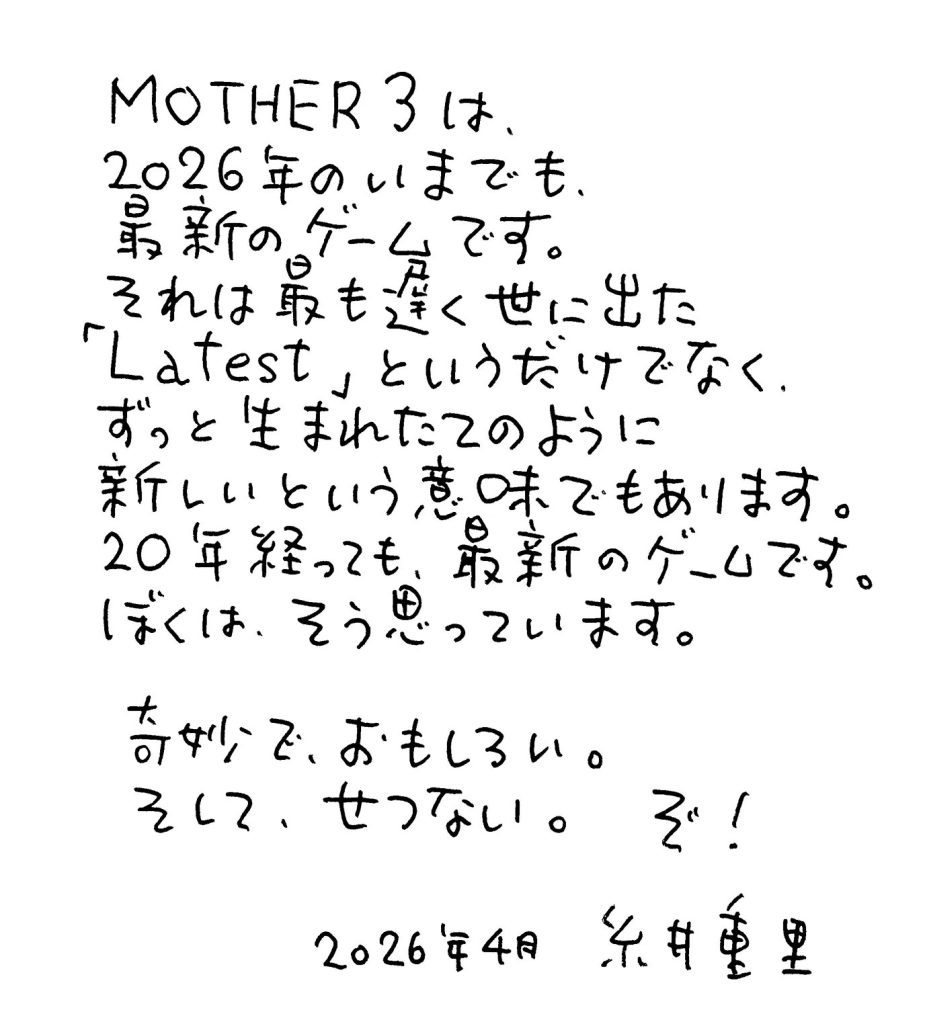 MOTHER 3 は、
2026年のいまでも、
最新のゲームです。
それは最も遅く世に出た
「Latest」というだけでなく、
ずっと生まれたてのように
新しいという意味でもあります。
20年経っても、最新のゲームです。
ぼくは、そう思っています。
奇妙で、おもしろい。
そして、せつない。 ぞ!
2026年4月 糸井重里